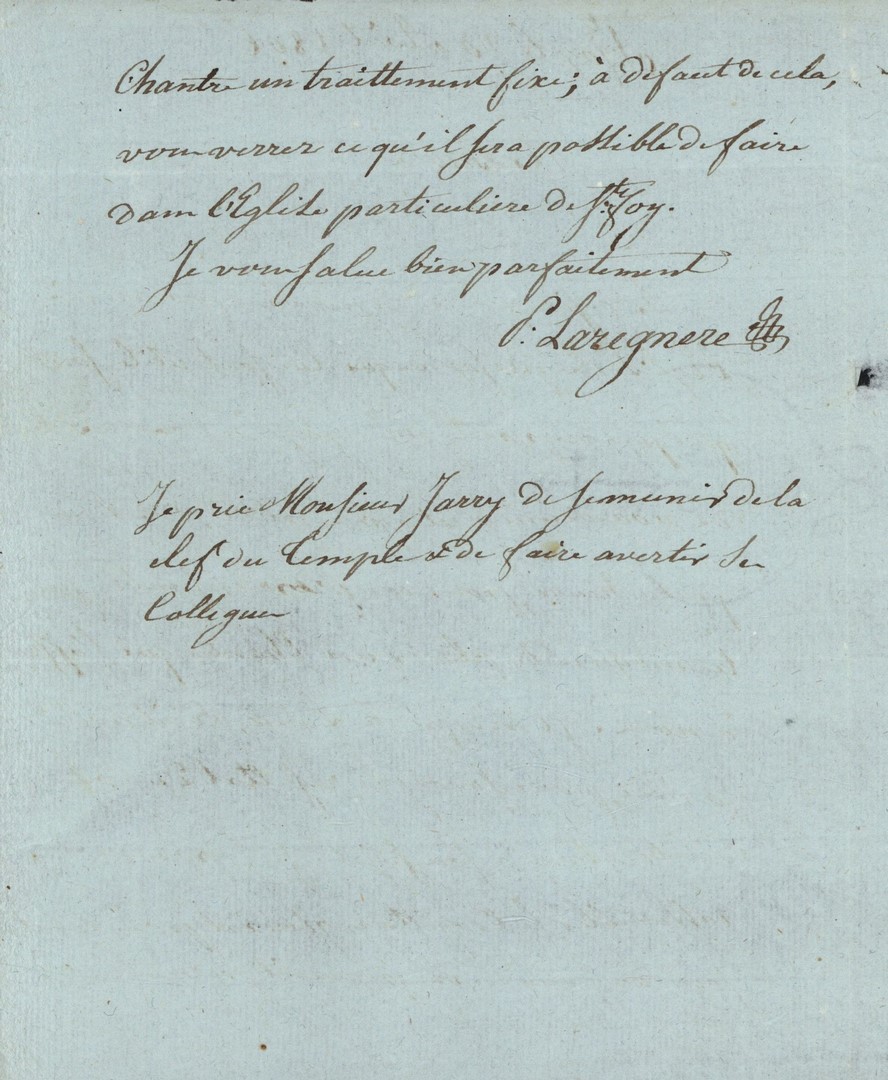 Chantre un traittement fixe; à defaut de cela,
vous verrez ce qu'il sera possible de faire
dans l'Eglise particuliere de Ste. Foy.
Je vous salue bien parfaitement
P: Laregnere
Je prie Monsieur Jarry de se munir de la
clef du Temple & de faire avertir ses
Collegues